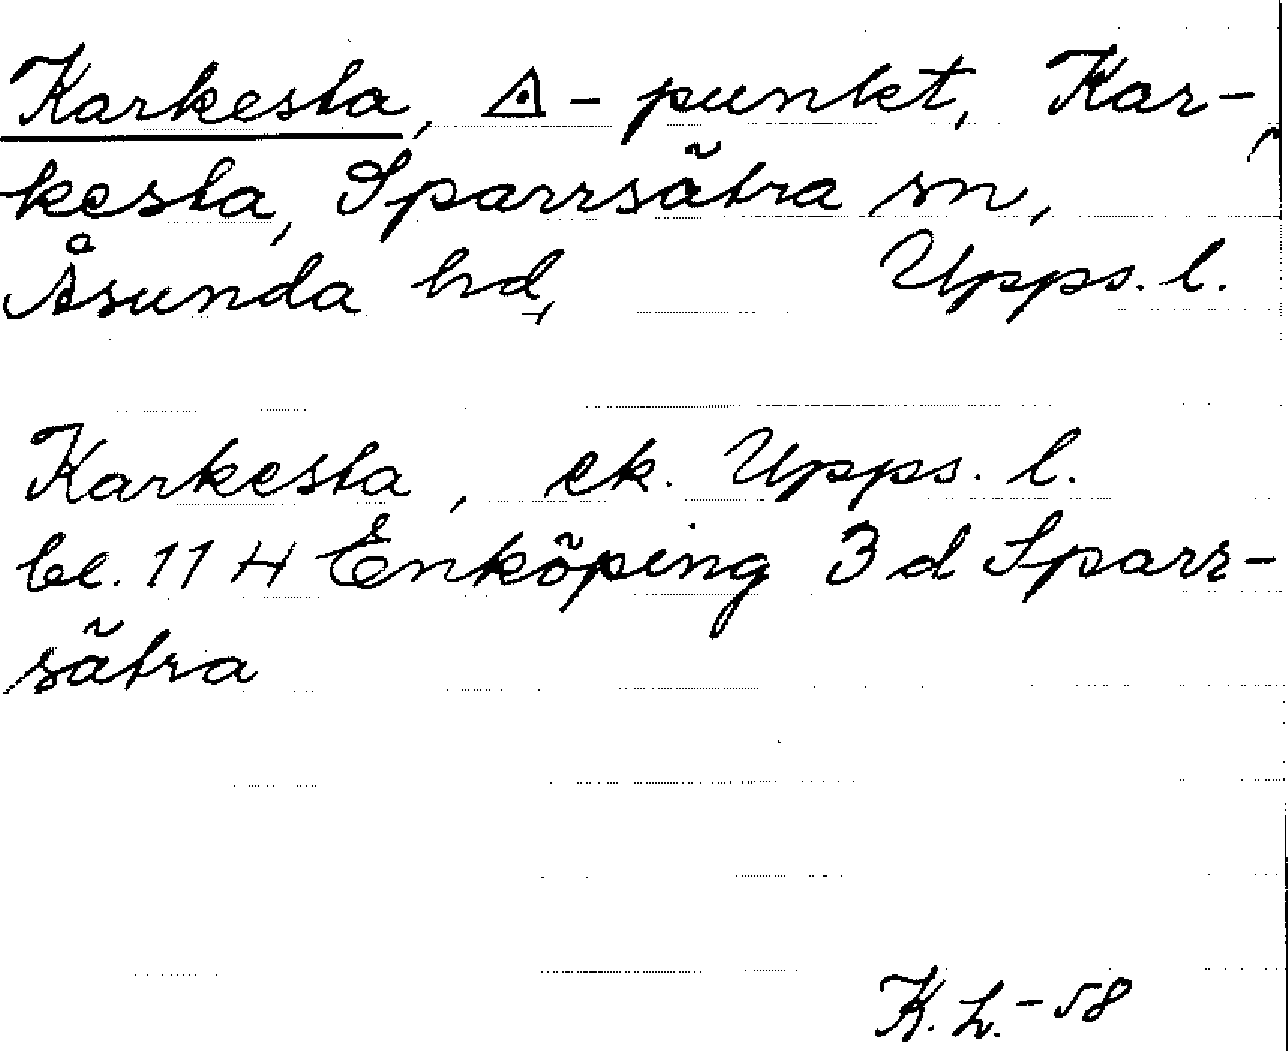 Karkesta, △-punkt, Kar-
kesta, Sparrsätra sn,
Åsunda hd, Upps. l.
Karkesta, ek. Upps. l.
bl. 11 H Enköping 3 d Sparr-
sätra
K. L. -58